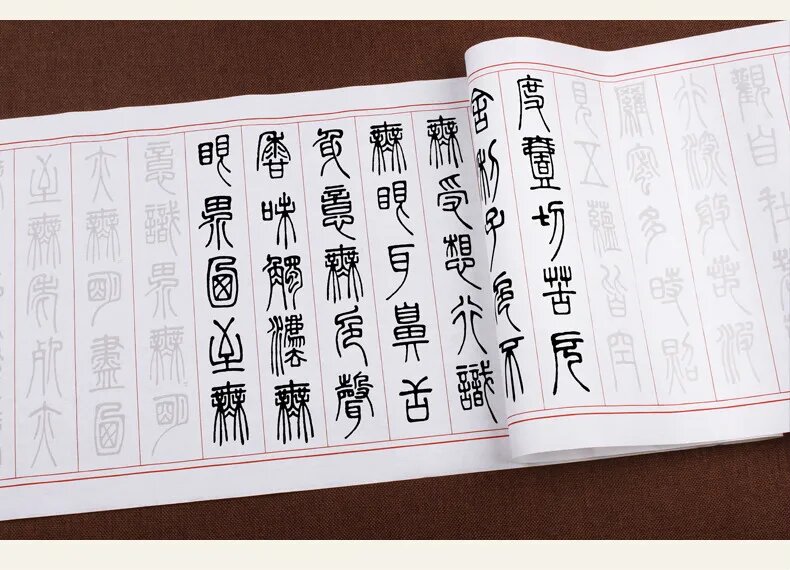 觀自在菩
行深般若波
羅蜜多時照
見五蘊皆空
度壹切苦厄
舍利子色不
無受想行識
無眼耳鼻舌
身意無色聲
香味觸法無
眼界乃至無
意識界無明
亦無明盡乃
至無老死亦